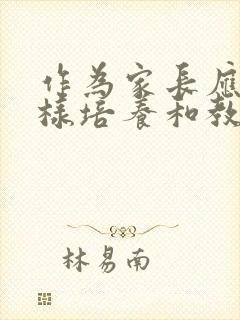 作為家長應
樣培養和教
林易南